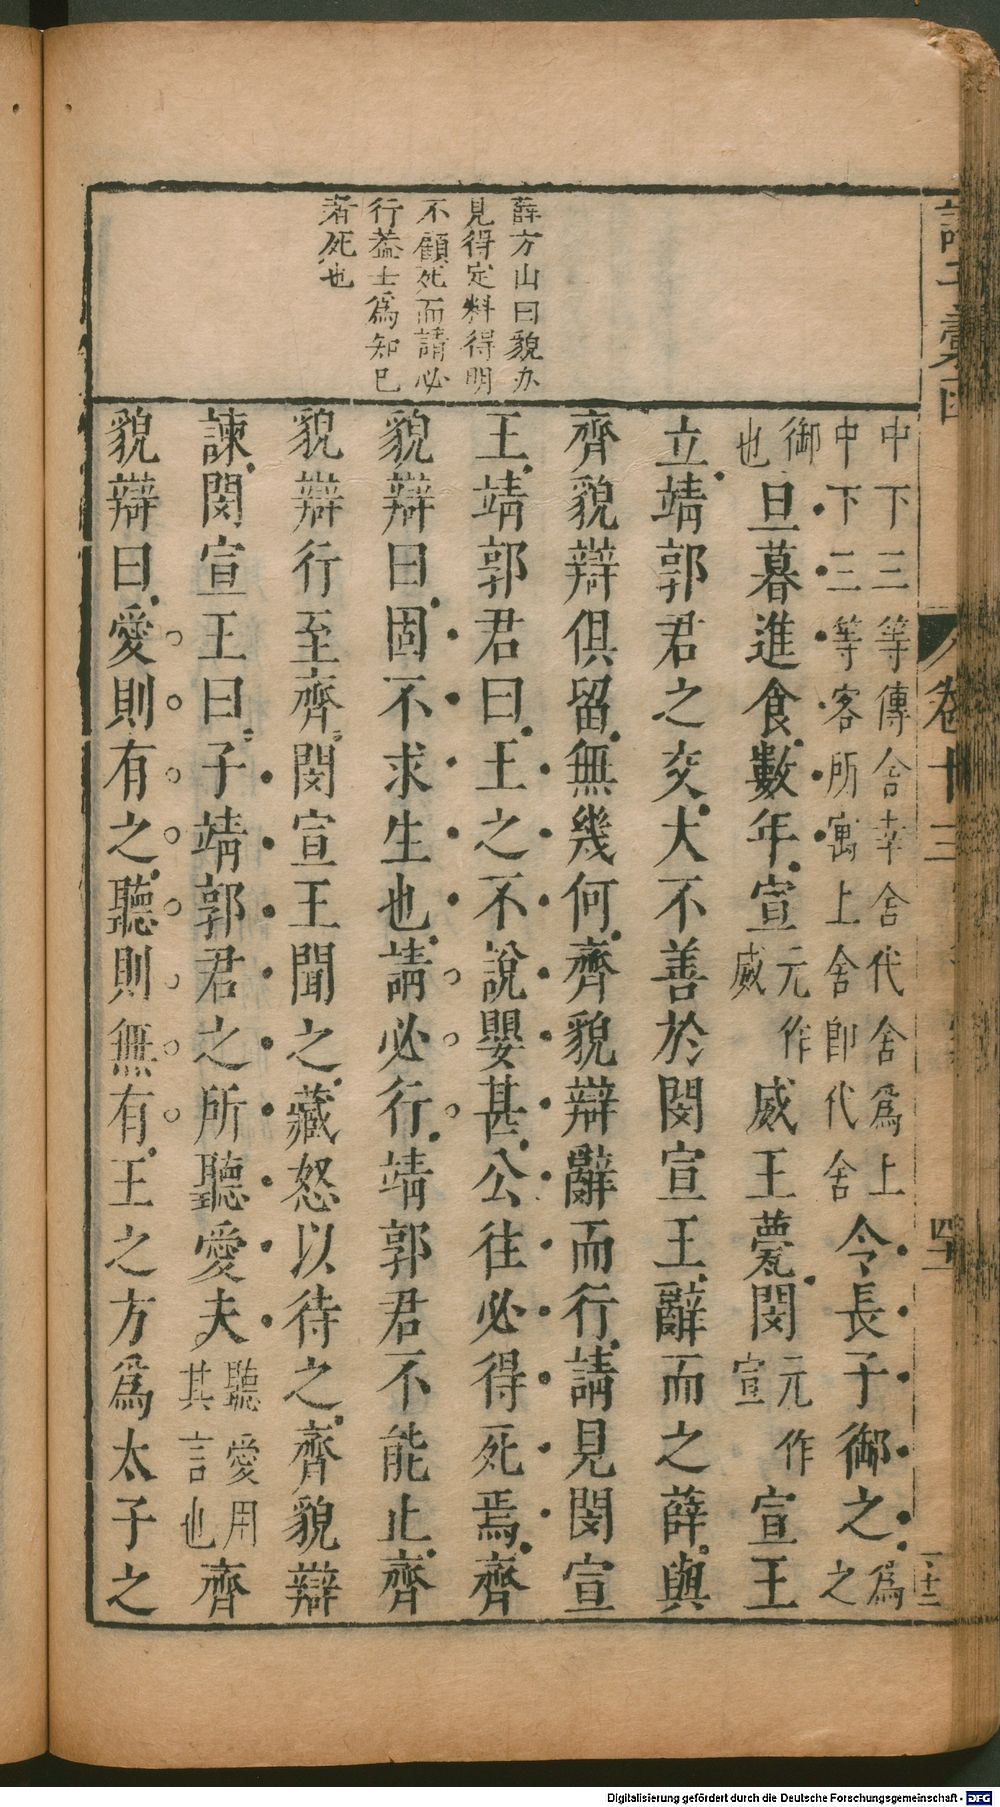 諸子彙函 卷十三
薛方山曰貌办
見得定料得明
不顧死而請必
行葢士爲知巳
者死也
中下三等傳舍幸舍代舍爲上中下三等客所寓上舍即代舍令長子御之爲之
御也旦暮進食數年宣元作威威王薨閔元作宣宣王
立靖郭君之交大不善於閔宣王辭而之薛與
齊貌辯俱留無幾何齊貌辯辭而行請見閔宣
王靖郭君曰王之不說嬰甚公往必得死焉齊
貌辯曰固不求生也請必行靖郭君不能止齊
貌辯行至齊閔宣王聞之藏怒以待之齊貌辯
諫閔宣王曰子靖郭君之所聽愛夫聽愛用其言也齊
貌辯曰愛則有之聽則無有王之方爲太子之
Digitalisierung gefördert durch die Deutsche Forschungsgemeinschaft - DFG